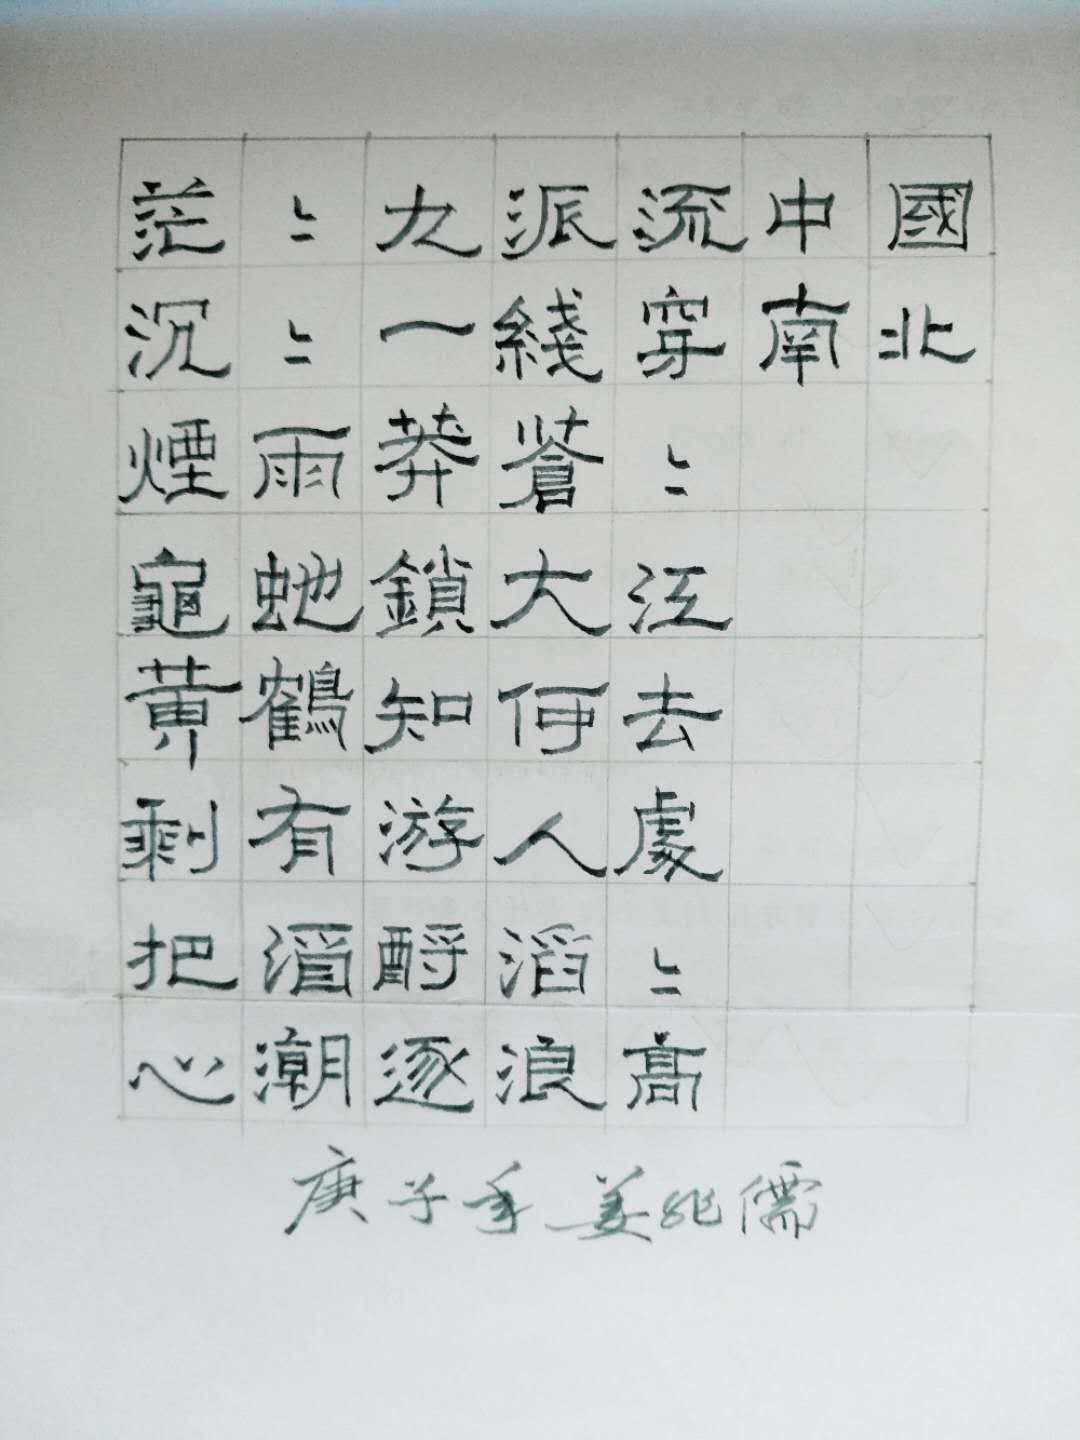 茫〻九派流中國
沉〻一綫穿南北
煙雨莽蒼〻
龜虵鎖大江
黃鶴知何去
剩有游人處
把酒酹滔〻
心潮逐浪高
庚子年姜兆儒